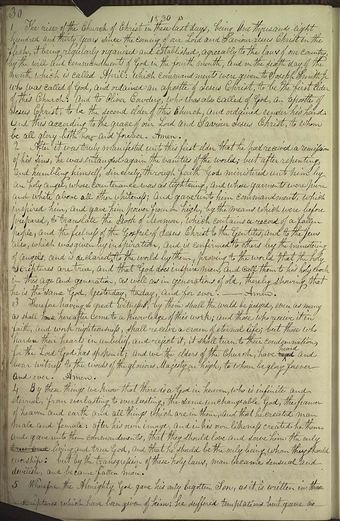 30
1830
1 The rise of the Church of Christ in these last days, being one thousand eight
hundred and thirty years since the coming of our Lord and Saviour Jesus Christ in the
flesh, it being regularly organized and established, agreeably to the laws of our country,
by the will and commandments of God in the fourth month, and on the sixth day of the
month which is called April: which commandments were given to Joseph Smith Jr.
who was called of God, and ordained an apostle of Jesus Christ, to be the first elder
of this Church: And to Oliver Cowdery, who was also called of God, an apostle of
Jesus Christ, to be the second elder of this Church, and ordained under his hand:
and this according to the grace of our Lord and Saviour Jesus Christ, to whom
be all glory both now and forever. Amen.
2 After it was truly manifested unto this first elder that he had received a remission
of his sins, he was entangled again in the vanities of the world; but after repenting,
and humbling himself, sincerely, through faith God ministered unto him by
an holy angel, whose countenance was as lightning, and whose garments were pure
and white above all other whiteness; and gave unto him commandments which
inspired him, and gave him power from on high, by the means which were before
prepared, to translate the Book of Mormon, which contains a record of a fallen
people, and the fulness of the Gospel of Jesus Christ to the Gentiles; and to the Jews
also, which was given by inspiration, and is confirmed to others by the ministering
of angels, and is declared to the world by them, proving to the world, that the holy
Scriptures are true, and that God does inspire men, and call them to his holy work
in this age and generation, as well as in generations of old, thereby showing, that
he is the same God, yesterday, today, and for ever. Amen.
3 Therefore, having so great witnesses, by them shall the world be judged, even as many
as shall hereafter come to a knowledge of this work; and those who receive it in
faith, and work righteousness, shall receive a crown of eternal life; but those who
harden their hearts in unbelief, and reject it, it shall turn to their condemnation,
for the Lord God has spoken it; and we the elders of the Church, have heard and
bear witness to the words of the glorious Majesty on high, to whom be glory forever
and ever. Amen.
4 By these things we know that there is a God in heaven, who is infinite and
eternal, from everlasting to everlasting, the same unchangeable God, the framer
of heaven and earth and all things which are in them, and that he created man
male and female: after his own image, and in his own likeness created he them:
and gave unto them commandments, that they should love and serve him the only
living and true God, and that he should be the only being whom they should
worship: but by the transgression of these holy laws, man became sensual and
devilish, and became fallen man.
5 Wherefore the Almighty God gave his only begotten Son, as it is written in those
scriptures which have been given of him: he suffered temptations but gave no